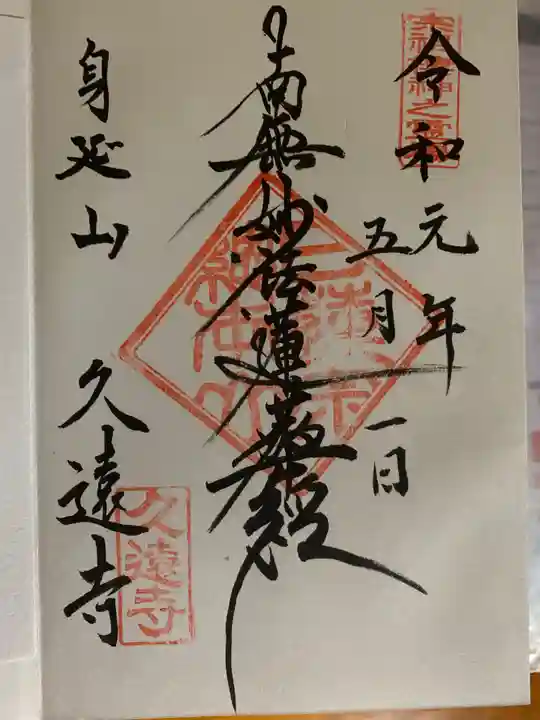 令和元年
五月一日
南無妙法蓮華経
身延山 久遠寺
久遠寺